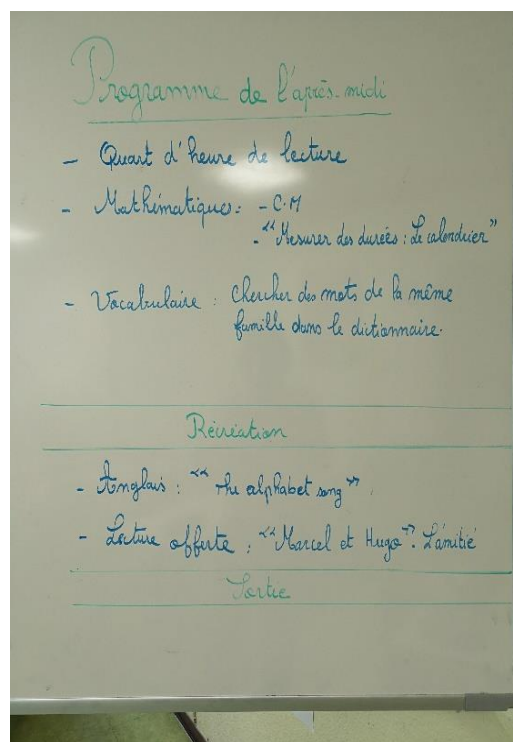 Programme de l'après-midi
- Quart d'heure de lecture
- Mathématiques : - C.M
- "Mesurer des durées : Le calendrier"
- Vocabulaire : Chercher des mots de la même
famille dans le dictionnaire.
Récréation
- Anglais : "The alphabet song".
- Lecture offerte : "Marcel et Hugo". L'amitié
Sortie